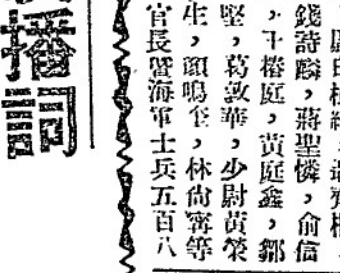 播詞
錢詩麟，蔣聖憐，俞信
，王椿庭，黃庭鑫，鄒
堅，葛敦華，少尉黃榮
生，頭鳴奎，林尙甯等
官長暨海軍士兵五百八